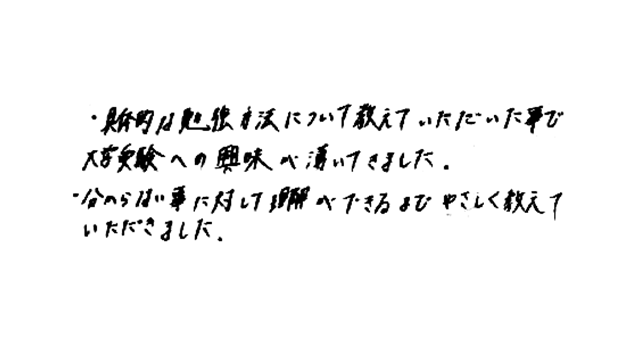 ・具体的な勉強方法について教えていただいた事で
大学受験への興味が湧いてきました。
・分からない事に対して理解ができるまでやさしく教えて
いただきました。